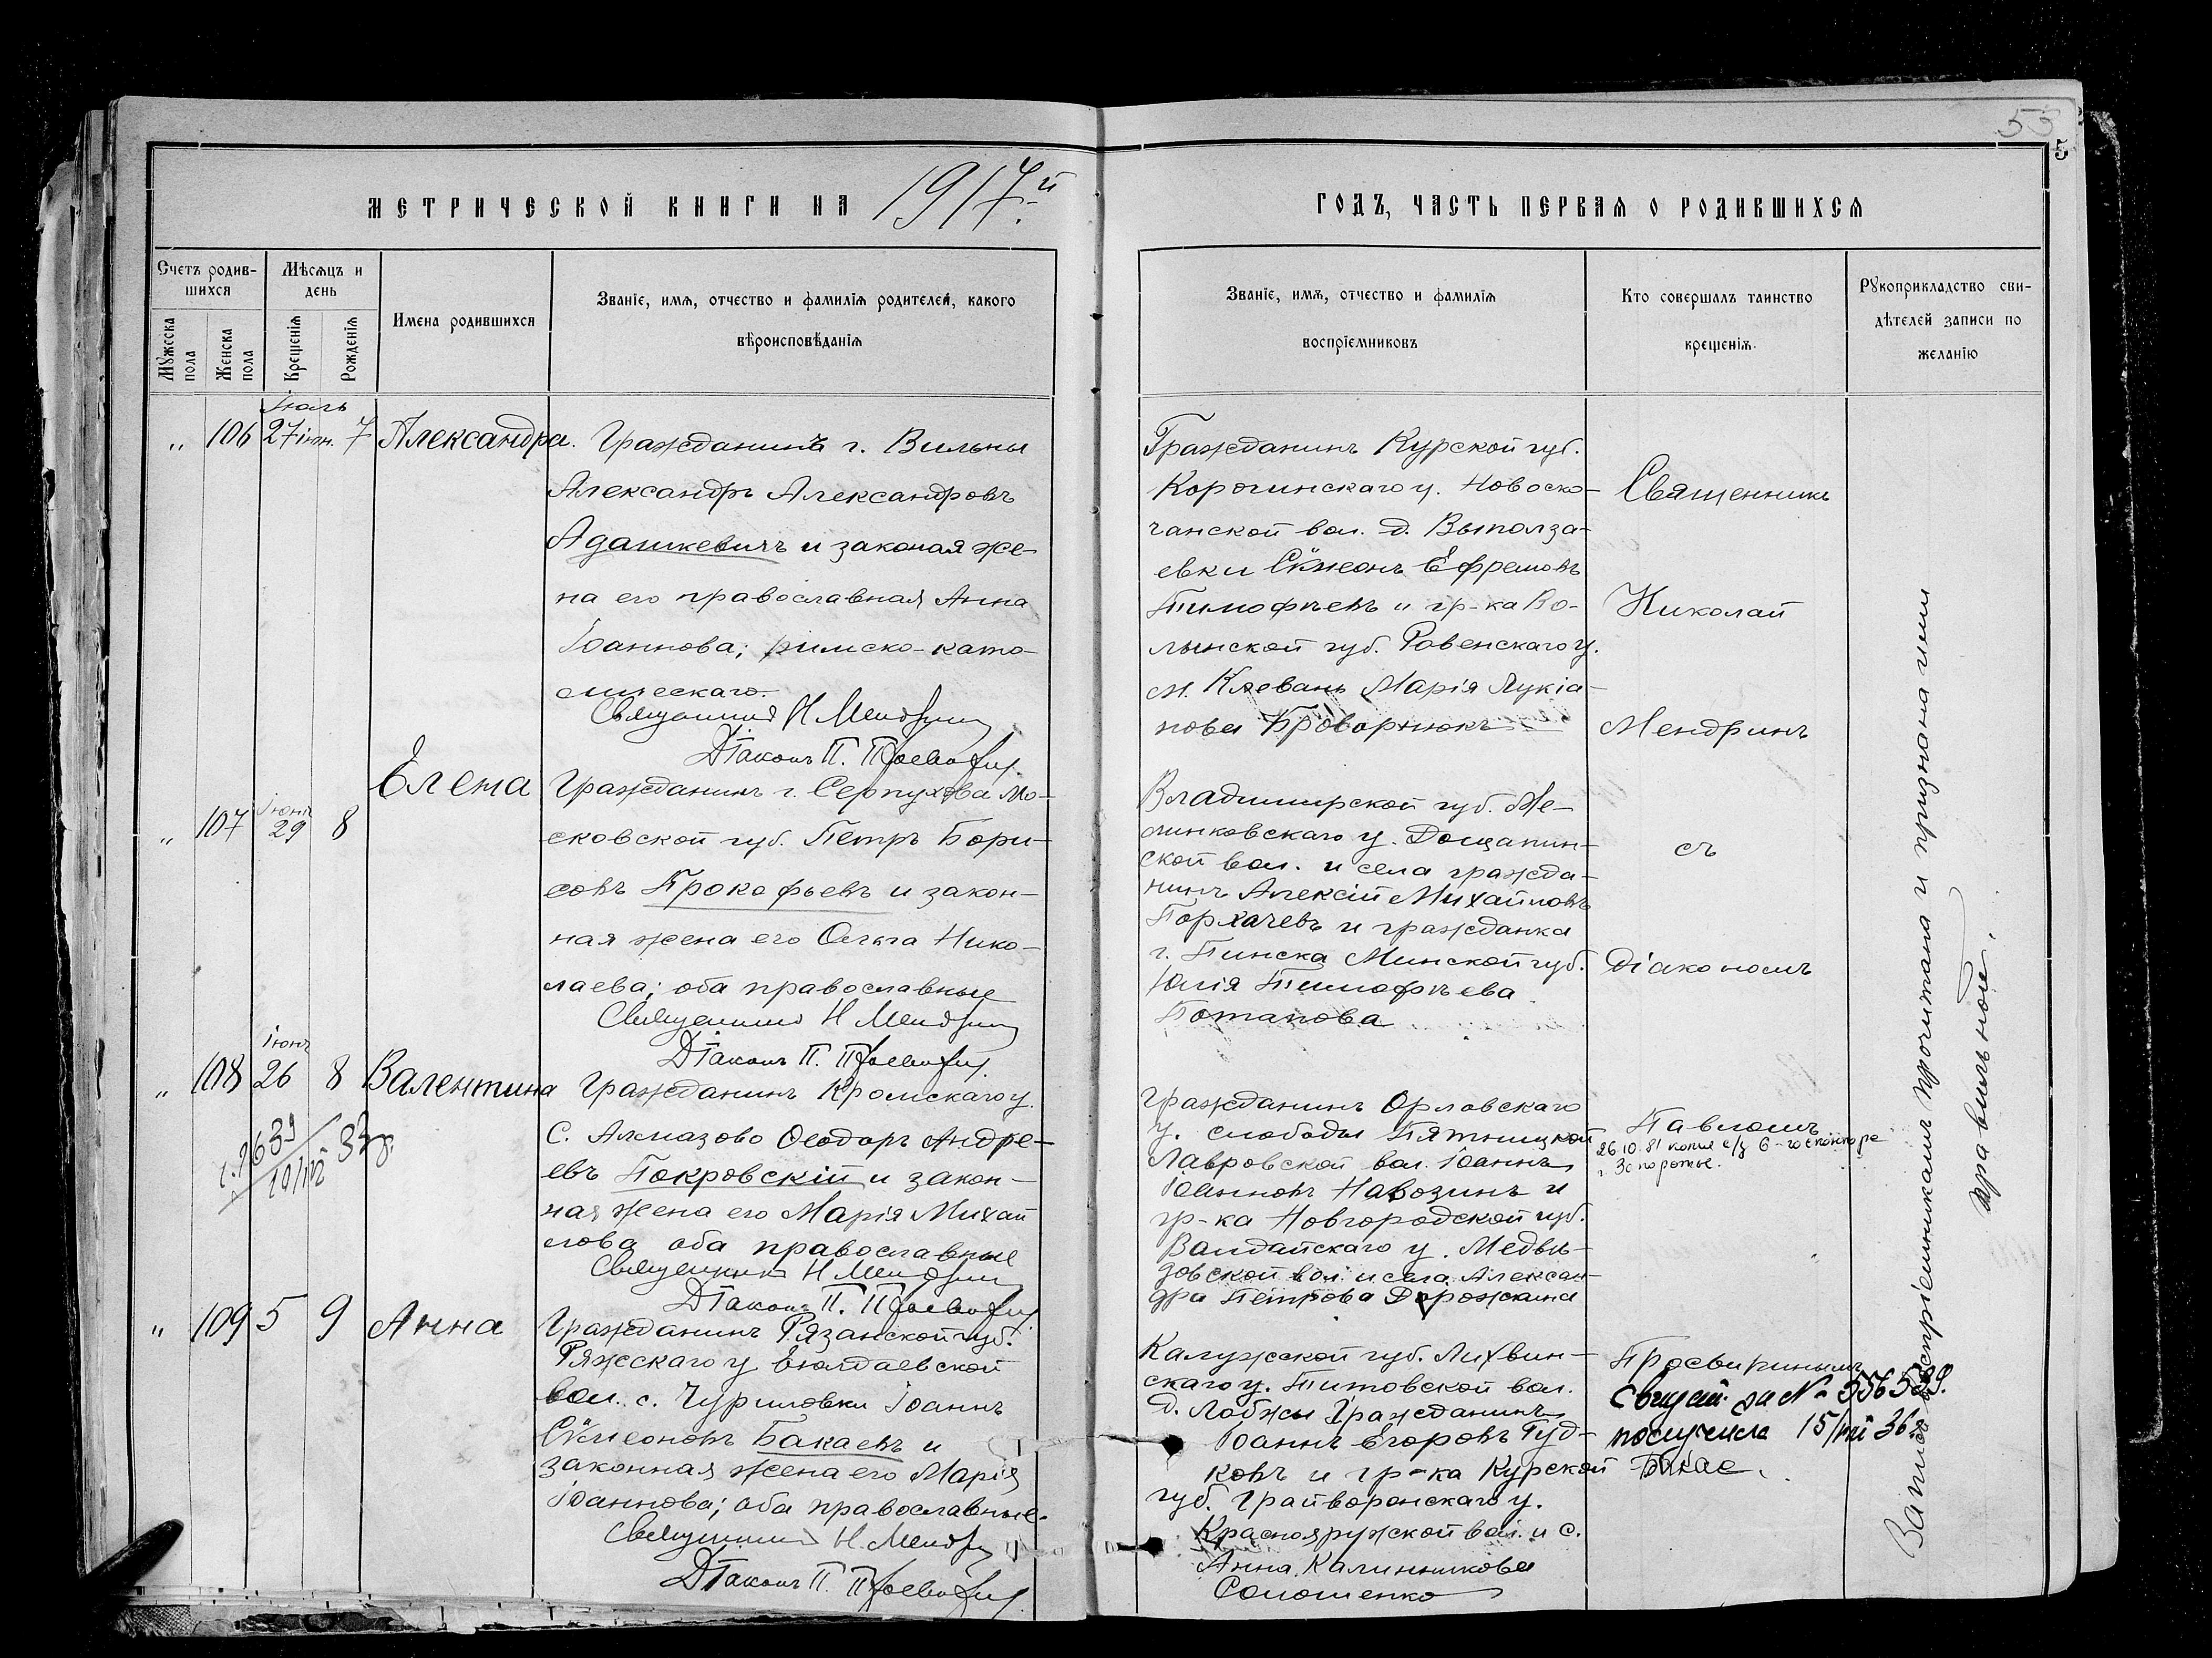 53
5
МЕТРИЧЕСКОЙ КНИГИ НА 1917й
ГОДЪ, ЧАСТЬ ПЕРВАЯ О РОДИВШИХСЯ
Счетъ родив-
шихся
Мужеска пола
Женска пола
Мѣсяцъ и
день
Крещенія
Рожденія
Имена родившихся
Званіе, имя, отчество и фамилія родителей, какого
вѣроисповѣданія
Званіе, имя, отчество и фамилія
воспріемниковъ
Кто совершалъ таинство
крещенія.
Рукоприкладство сви-
дѣтелей записи по
желанію
Іюль
„ 106 27 іюн. 7 Александра.
Гражданинъ г. Вильны
Александръ Александровъ
Адашкевичъ и законая же-
на его православная Анна
Іоаннова; римско-като-
лическаго.
Священникъ Н Мендринъ
Діаконъ П.
Гражданинъ Курской губ.
Корочинскаго у. Новоско-
чанской вол. д. Выполза-
евки Сѵмеонъ Ефремовъ
Тимофѣевъ и гр-ка Во-
лынской губ. Ровенскаго у.
м. Клевань Марія Лукіа-
нова
Священник
Николай
Мендринъ
съ
Діакономъ
Павломъ
Просвирнинымъ
Іюнь
„ 107 29 8 Елена
Гражданинъ г. Серпухова Мо-
сковской губ. Петръ Бори-
совъ Прокофьевъ и закон-
ная жена его Ольга Нико-
лаева; оба православные
Священникъ Н Мендринъ
Діаконъ П.
Владимирской губ. Ме-
линковскаго у. Дощатин-
ской вол. и села гражда-
нинъ Алексій Михайловъ
Горхачевъ и гражданка
г. Пинска Минской губ.
Юлія Тимофѣева
Потапова
Іюнь
„ 108 26 8 Валентина
2639
33 г.
Гражданинъ Кромскаго у.
С. Алмазово Ѳеодоръ Андре-
евъ Покровскій и закон-
ная жена его Марія Михай
лова оба православные
Священникъ Н Мендринъ
Діаконъ П.
Гражданинъ Орловскаго
у. слободы Пятницкой
Лавровской вол. Іоаннъ
Іоанновъ Навозинъ и
гр-ка Новгородской губ.
Валдайскаго у. Медвѣ-
довской вол. и села Алексан-
дра Петрова Дорожкина
26 10. 81 копия с/з
„ 109 5 9 Анна
Гражданинъ Рязанской губ.
Ряжскаго у.
вол. с. Чуриловки Іоаннъ
Сѵмеоновъ Бакаевъ и
законная жена его Марія
Іоаннова; оба православные.
Священникъ Н. Мендринъ
Діаконъ П.
Калужской губ. Лихвин-
скаго у. Титовской вол.
д. Лобжы Гражданинъ
Іоаннъ Егоровъ Гуд-
ковъ и гр-ка Курской
губ. Грайворонскаго у.
Краснояружской вол. и с.
Анна Калинникова
Солошенко
за №
получила 15/VII 36 г.
Запись воспріемникамъ прочитана и признана ими
правильной.